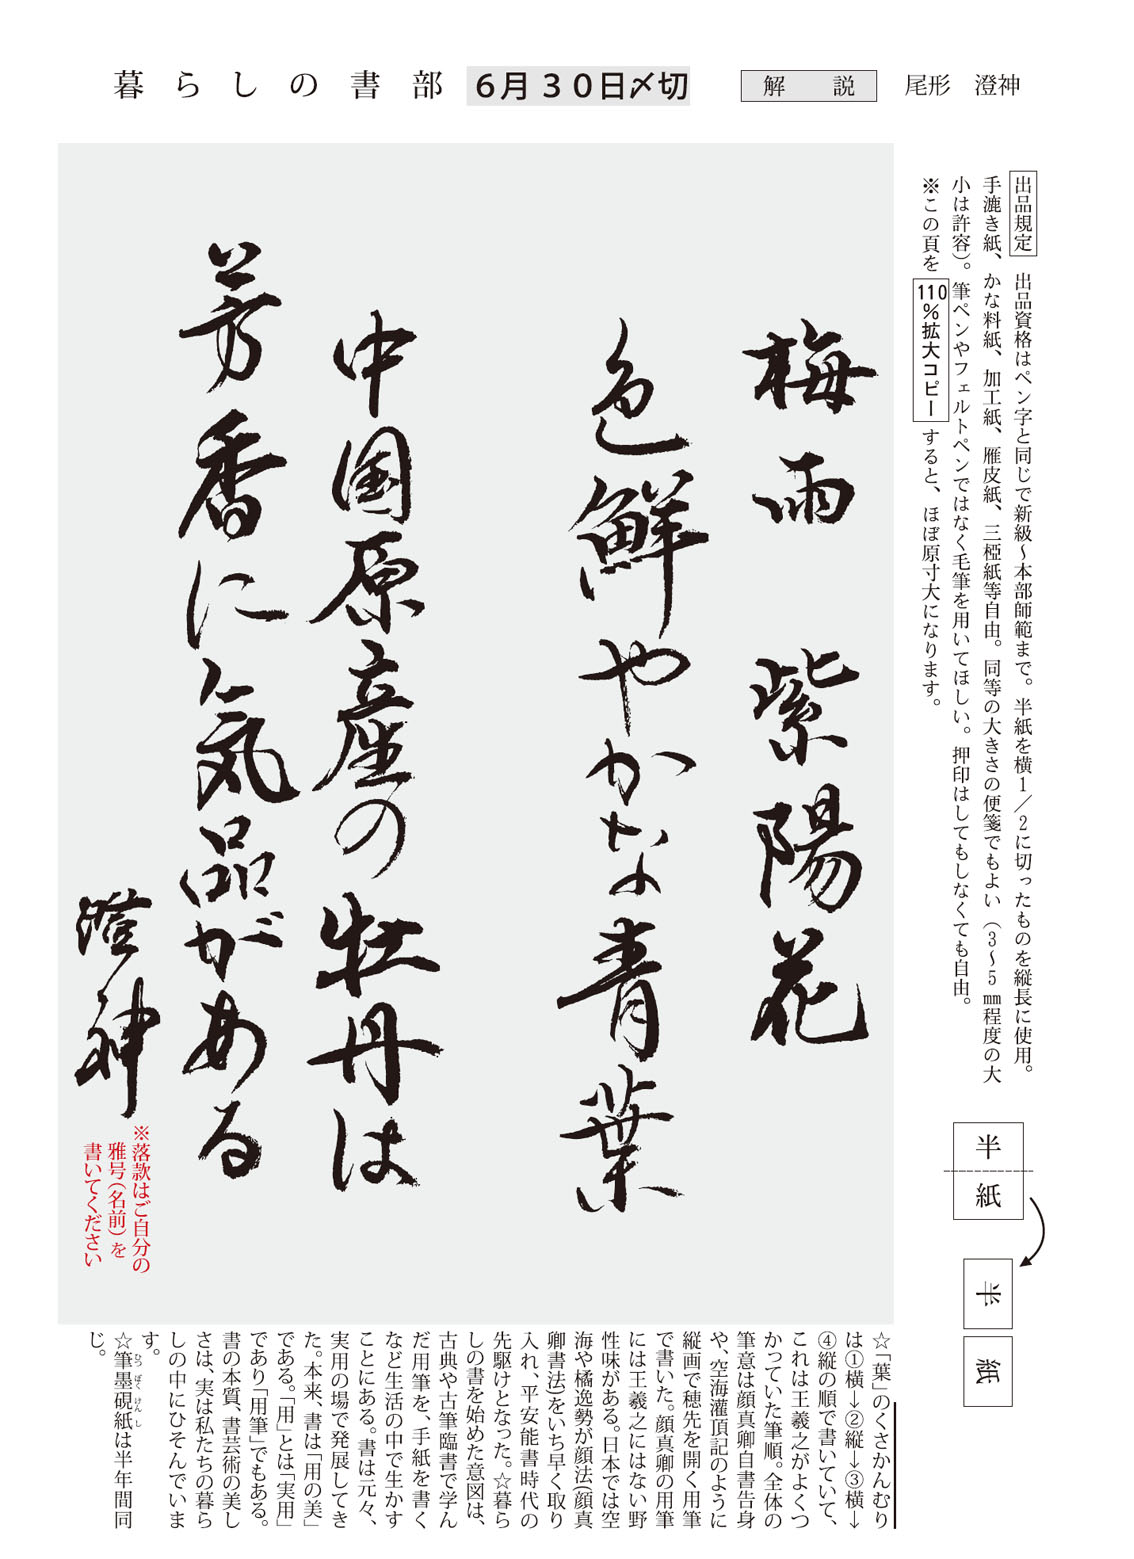 暮らしの書部 6月30日〆切 解説 尾形 澄神
出品規定 出品資格はペン字と同じで新級～本部師範まで。半紙を横1／2に切ったものを縦長に使用。
手漉き紙、かな料紙、加工紙、雁皮紙、三椏紙等自由。同等の大きさの便箋でもよい（3～5㎜程度の大
小は許容）。筆ペンやフェルトペンではなく毛筆を用いてほしい。押印はしてもしなくても自由。
※この頁を110％拡大コピーすると、ほぼ原寸大になります。
半紙
半紙
梅雨 紫陽花
色鮮やかな青葉
中国原産の牡丹は
芳香に気品がある
澄神
※落款はご自分の
雅号（名前）を
書いてください
☆「葉」のくさかんむり
は①横→②縦→③横→
④縦の順で書いていて、
これは王羲之がよくつ
かっていた筆順。全体の
筆意は顔真卿自書告身
や、空海灌頂記のように
縦画で穂先を開く用筆
で書いた。顔真卿の用筆
には王羲之にはない野
性味がある。日本では空
海や橘逸勢が顔法（顔真
卿書法）をいち早く取り
入れ、平安能書時代の
先駆けとなった。☆暮ら
しの書を始めた意図は、
古典や古筆臨書で学ん
だ用筆を、手紙を書く
など生活の中で生かす
ことにある。書は元々、
実用の場で発展してき
た。本来、書は「用の美」
である。「用」とは「実用」
であり「用筆」でもある。
書の本質、書芸術の美し
さは、実は私たちの暮ら
しの中にひそんでいま
す。
☆筆墨硯紙は半年間同
ひつぼくけんし
じ。